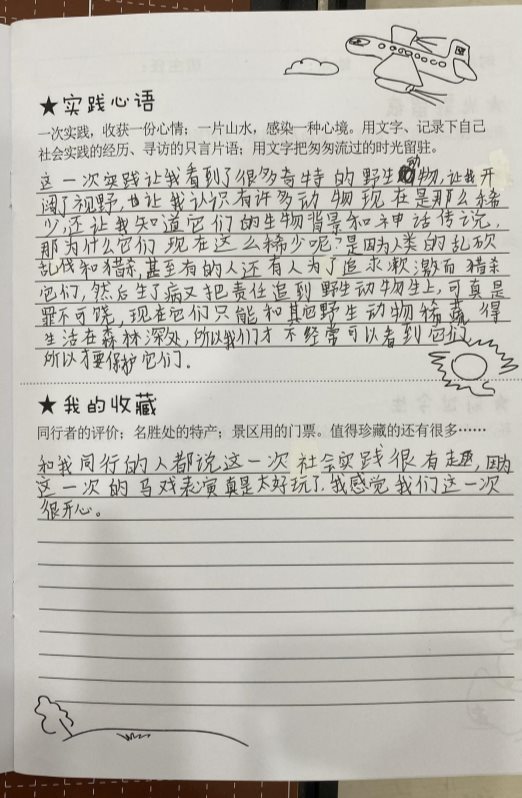 ★实践心语
一次实践，收获一份心情；一片山水，感染一种心境。用文字、记录下自己
社会实践的经历、寻访的只言片语；用文字把匆匆流过的时光留驻。
这一次实践让我看到了很多奇特的野生动物，让我开
阔了视野，也让我认识有许多动物现在是那么稀
少，还让我知道它们的生物背景和神话传说，
那为什么它们现在这么稀少呢？是因为人类的乱砍
乱伐和猎杀，甚至有的人还有人为了追求刺激而猎杀
它们，然后生了病又把责任追到野生动物生上，可真是
罪不可饶，现在它们只能和其它野生动物稀藏得
生活在森林深处，所以我们才不经常可以看到它们，
所以才要保护它们。
★我的收藏
同行者的评价；名胜处的特产；景区用的门票。值得珍藏的还有很多……
和我同行的人都说这一次社会实践很有趣，因为
这一次的马戏表演真是太好玩了，我感觉我们这一次
很开心。